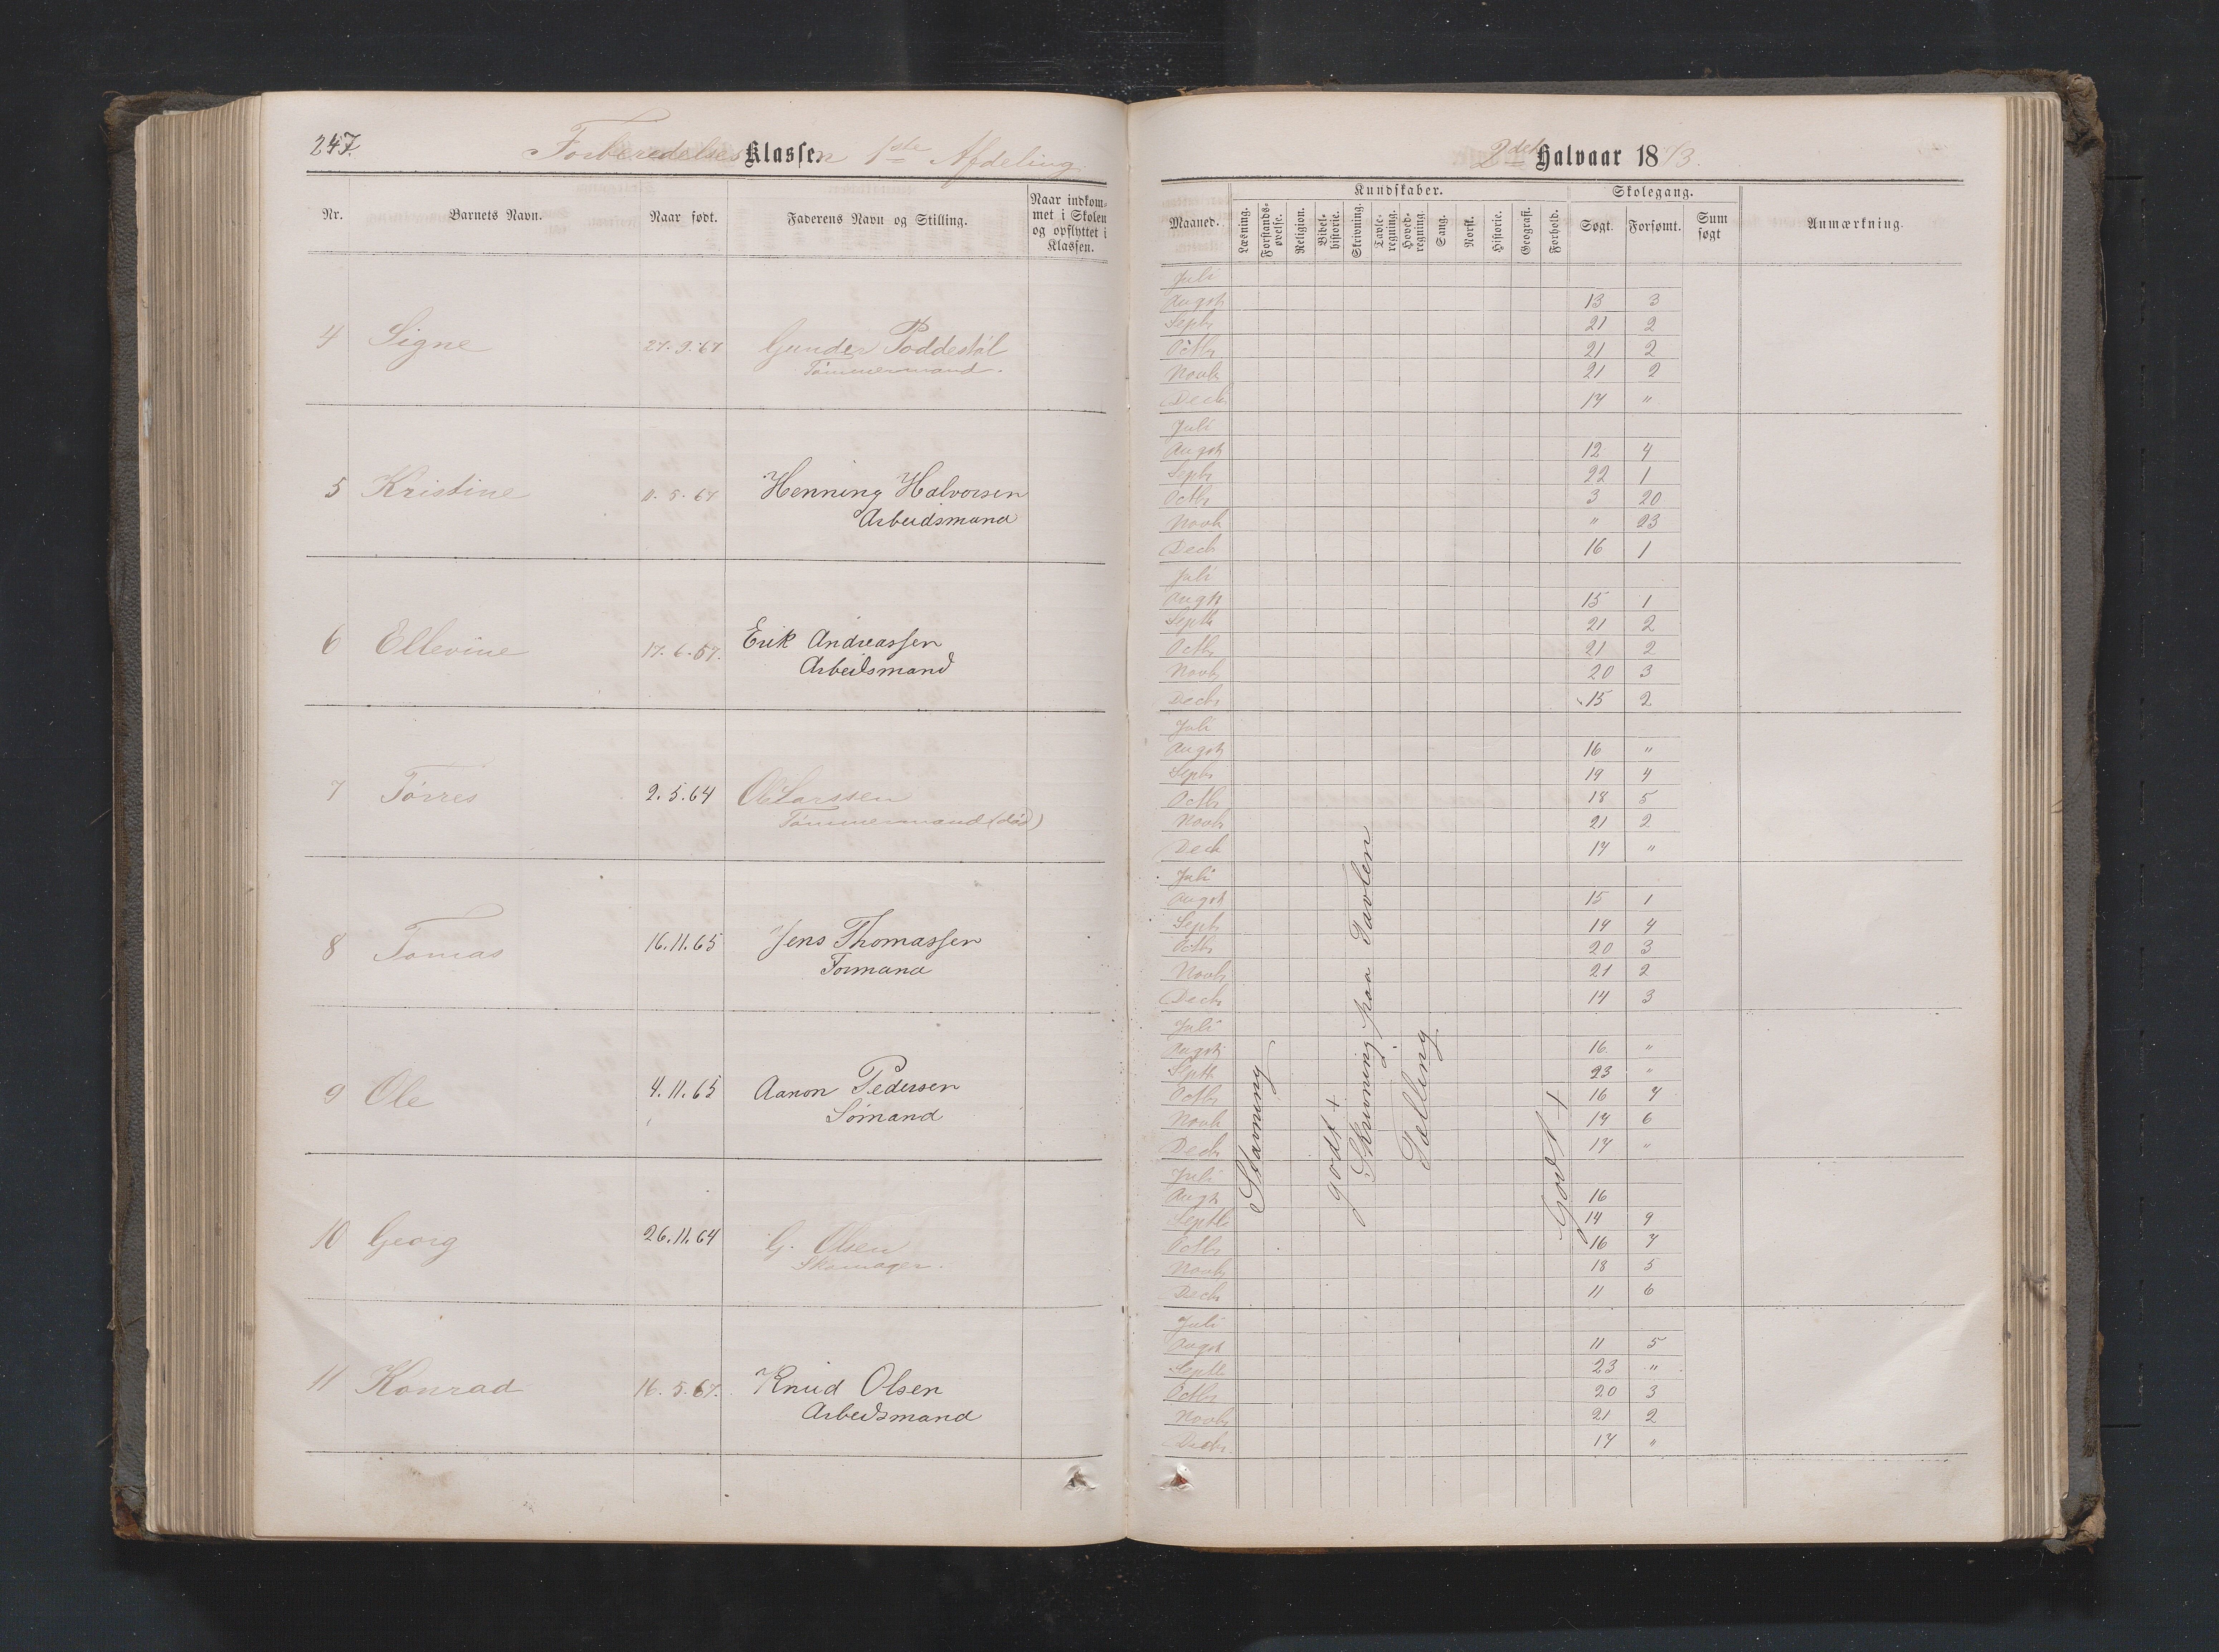 247.
Forberedelses Klassen 1ste Afdeling
Nr.
Barnets Navn.
Naar født.
Faderens Navn og Stilling.
Naar indkom-
met i Skolen
og opflyttet i
Klassen.
4 Signe 27.9.67 Gunder Poddestøl
Tømmermand.
5 Kristine 11.5.67 Henning Halvorsen
Arbeidsmand
6 Ellevine 17.6.67. Erik Andreassen
Arbeidsmand
7 Tørres 2.5.64 Ole Larssen
Tømmermand (død)
8 Tomas 16.11.65 Jens Thomassen
Formand
9 Ole 4.11.65 Aanon Pedersen
Sømand
10 Georg 26.11.64 G. Olsen
Skomager.
11 Konrad 16.5.67. Knud Olsen
Arbeidsmand
2det Halvaar 1873.
Maaned.
Kundskaber.
Læsning.
Forstands-
øvelse.
Religion.
Bibel-
historie.
Skrivning.
Tavle-
regning.
Hoved-
regning.
Sang.
Norsk.
Historie.
Geografi.
Forhold.
Skolegang.
Søgt.
Forsømt.
Sum
søgt
Anmærkning.
Juli
Augst 13 3
Septbr 21 2
Octbr 21 2
Novbr 21 2
Decbr 17 "
Juli
Augst 12 4
Septbr 22 1
Octbr 3 20
Novbr " 23
Decbr 16 1
Juli
Augst 15 1
Septbr 21 2
Octbr 21 2
Novbr 20 3
Decbr 15 2
Juli
Augst 16 "
Septbr 19 4
Octbr 18 5
Novbr 21 2
Decbr 17 "
Juli
Augst 15 1
Septbr 19 4
Octbr 20 3
Novbr 21 2
Decbr 14 3
Juli
Augst 16 "
Septbr 23 "
Octbr 16 7
Novbr 17 6
Decbr 17 "
Juli
Augst 16
Septbr 14 9
Octbr 16 7
Novbr 18 5
Decbr 11 6
Juli
Augst 11 5
Septbr 23 "
Octbr 20 3
Novbr 21 2
Decbr 17 "
Stavning
godt +
Skrivning paa Tavlen
Tælling
Godt +